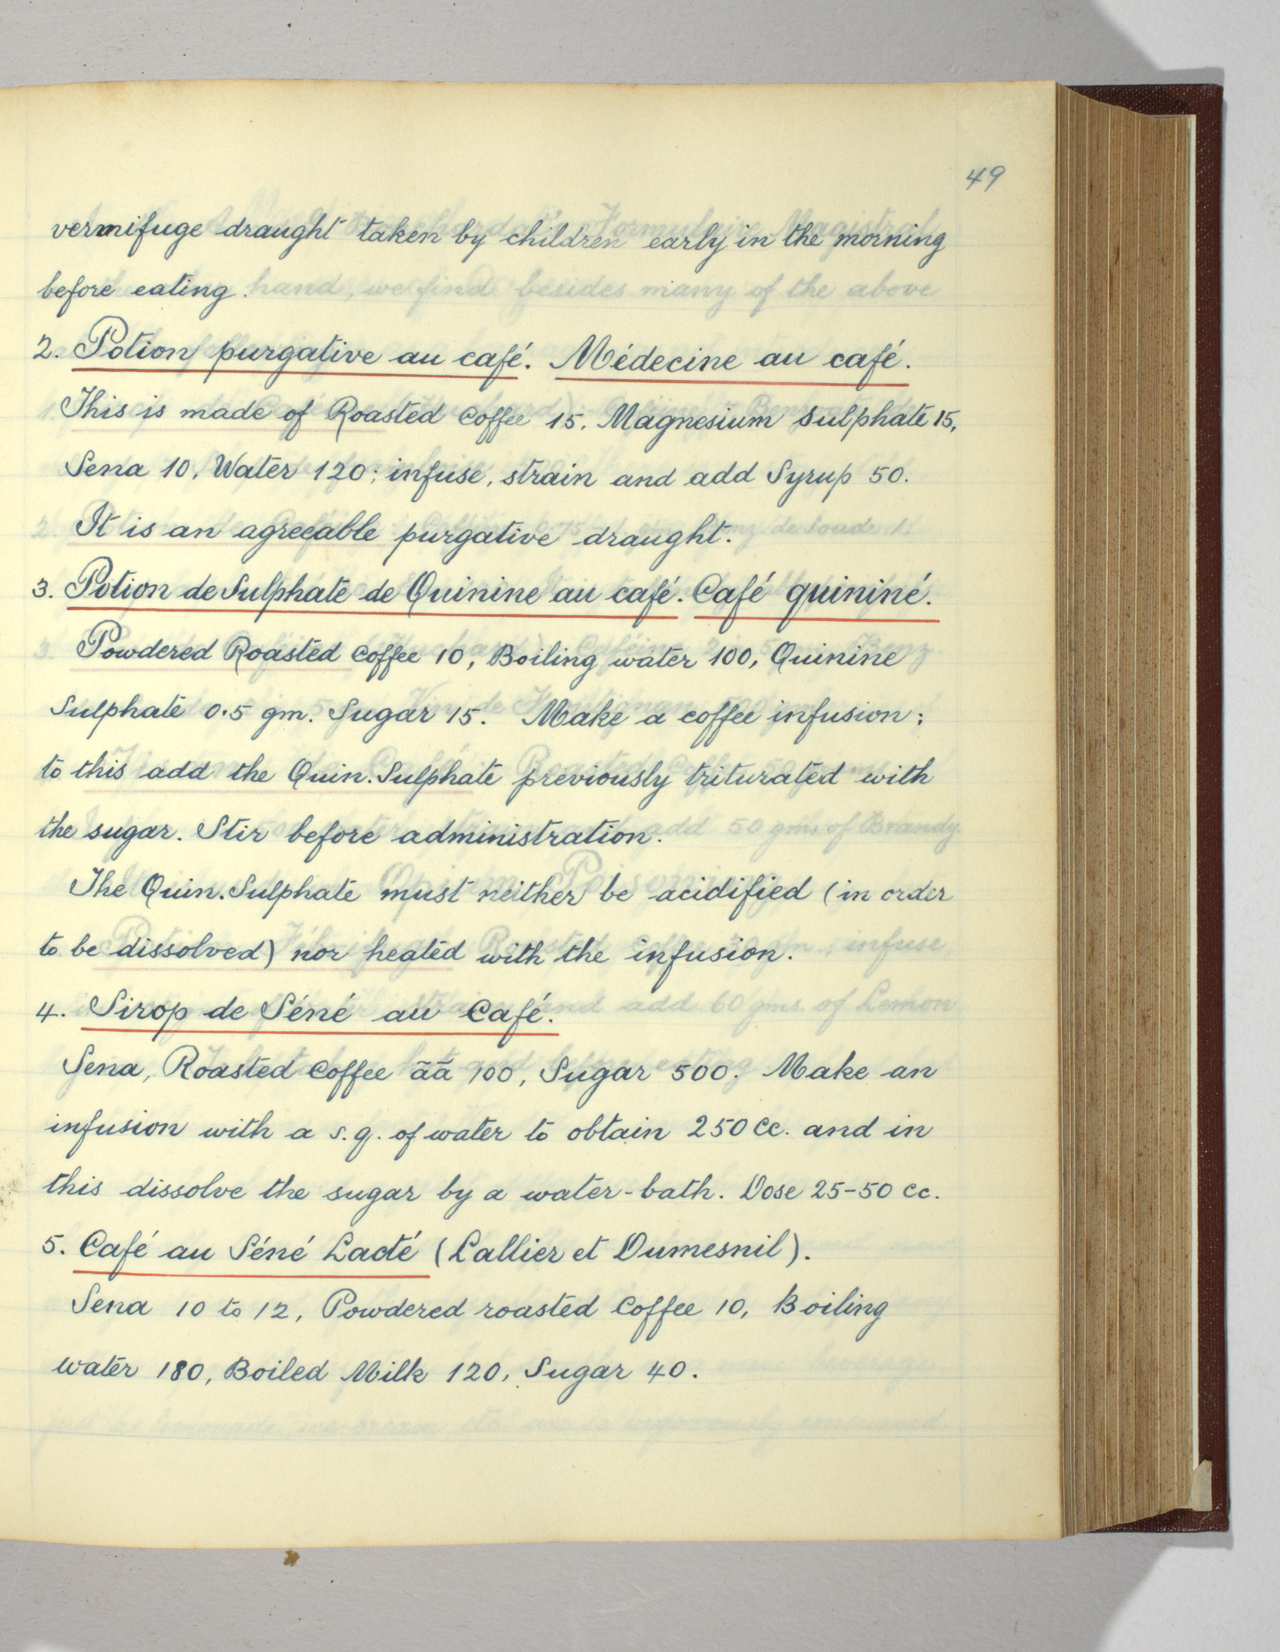 49
vermifuge draught taken by children early in the morning
before eating.
2. Potion purgative au café. Médecine au café.
This is made of Roasted Coffee 15, Magnesium Sulphate 15,
Sena 10, Water 120; infuse, strain and add Syrup 50.
It is an agreeable purgative draught.
3. Potion de Sulphate de Quinine au café. Café quininé.
Powdered Roasted Coffee 10, Boiling water 100, Quinine
Sulphate 0.5 gm. Sugar 15. Make a coffee infusion;
to this add the Quin. Sulphate previously triturated with
the sugar. Stir before administration.
The Quin. Sulphate must neither be acidified (in order
to be dissolved) nor heated with the infusion.
4. Sirop de Séné au Café.
Sena, Roasted Coffee āā 100, Sugar 500. Make an
infusion with a s.q. of water to obtain 250 cc. and in
this dissolve the sugar by a water-bath. Dose 25-50 cc.
5. Café au Séné Lacté (Lallier et Dumesnil).
Sena 10 to 12, Powdered roasted Coffee 10, Boiling
water 180, Boiled Milk 120, Sugar 40.